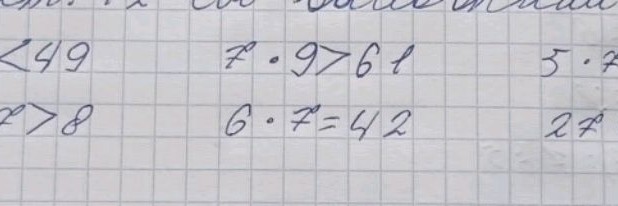 <49 7 · 9 > 61 5 · 7
7 > 8 6 · 7 = 42 27